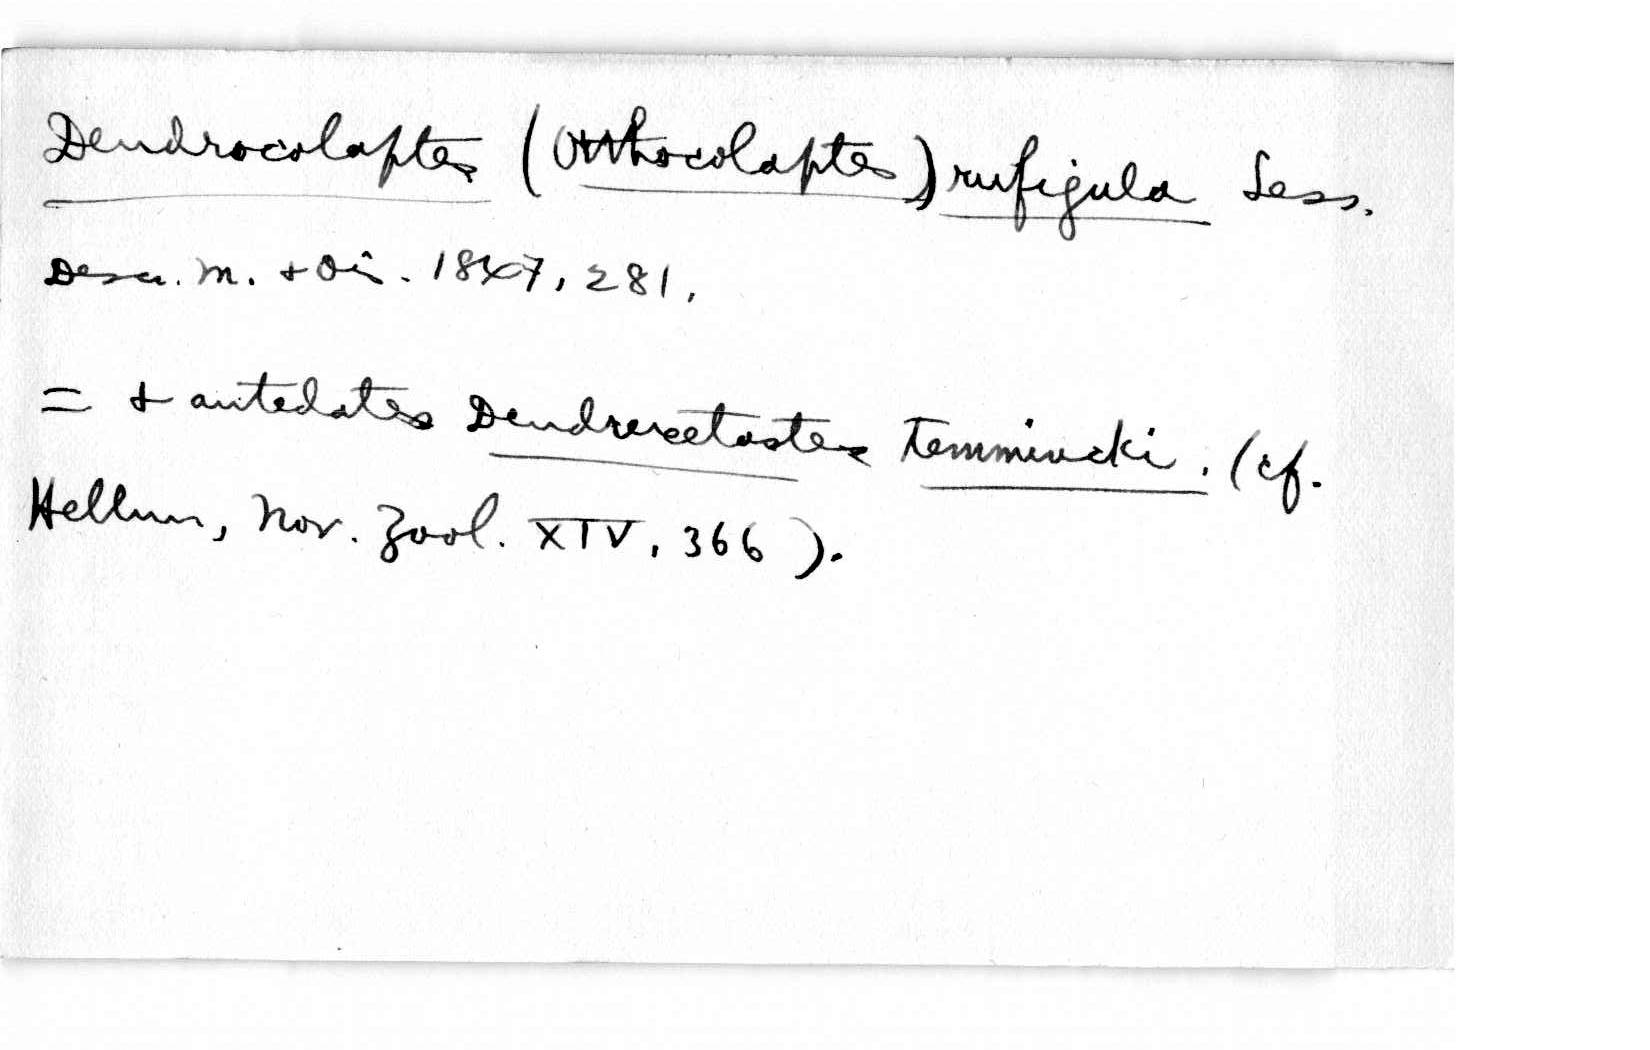 Dendrocolaptes (Orthocolaptes) rufigula Less.
Descr. m. + Ois. 1847, 281.
= + antedates Dendrexetastes Temmincki. (cf.
Hellm, Nov. Zool. XIV, 366).